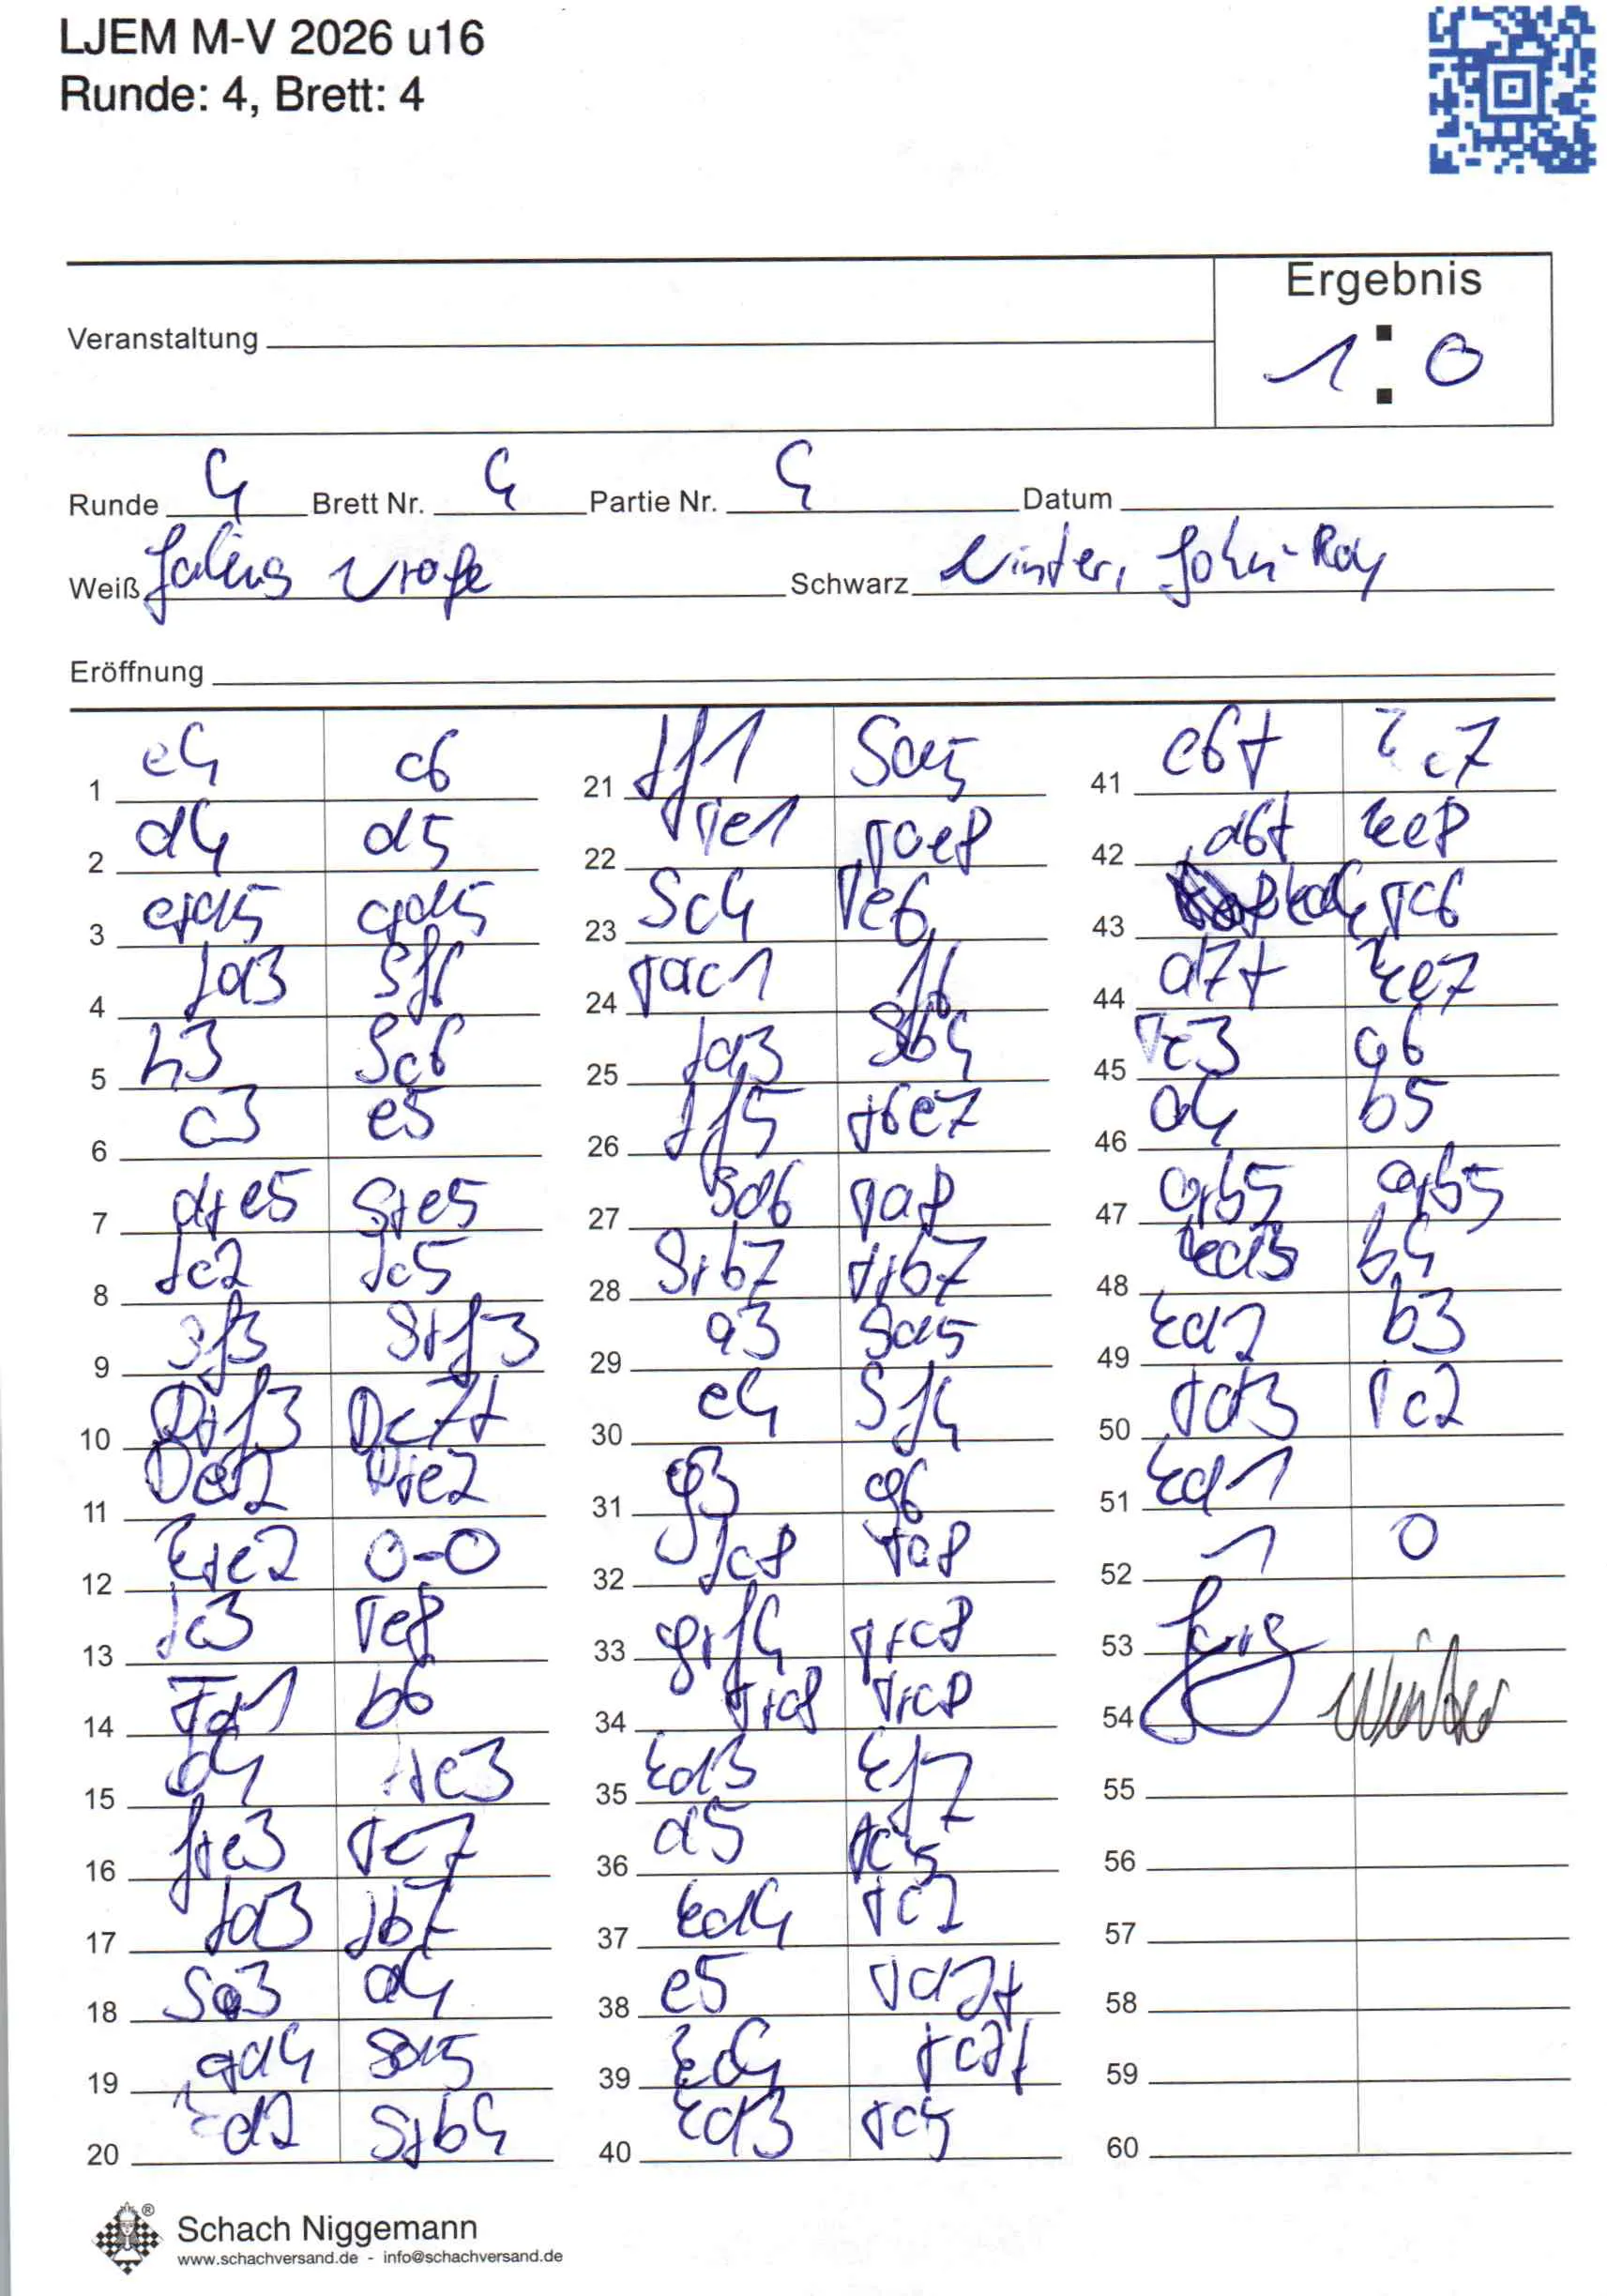 LJEM M-V 2026 u16
Runde: 4, Brett: 4
Ergebnis
1 : 0
Veranstaltung
Runde 4 Brett Nr. 4 Partie Nr. 4 Datum
Weiß Schwarz Winter, John-Roy
Eröffnung
1 e4 c6
2 d4 d5
3 exd5 cxd5
4 Ld3 Sf6
5 h3 Sc6
6 c3 e5
7 dxe5 Sxe5
8 Lc2 Lc5
9 Sf3 Sxf3
10 Dxf3 Dc7+
11 De2 Dxe2
12 Kxe2 0-0
13 Le3 Te8
14 Td1 b6
15 d4 Lxe3
16 fxe3 Te7
17 Ld3 Lb7
18 Sa3 d4
19 cxd4 Sd5
20 Kd2 Sxb4
21 Lf1 Sd5
22 Te1 Tae8
23 Sc4 Te6
24 Tac1 f6
25 Ld3 Sb4
26 Lf5 T6e7
27 Sd6 Ta8
28 Sxb7 Txb7
29 a3 Sd5
30 e4 Sf4
31 g3 g6
32 Lc8 Ta8
33 gxf4 Txc8
34 Txc8 Txc8
35 Kd3 Kf7
36 d5 Tc5
37 Kd4 Tc2
38 e5 Td2+
39 Kc4 Tc2+
40 Kd3 Tc5
41 e6+ Ke7
42 d6+ Ke8
43 Kd4 Tc6
44 d7+ Ke7
45 Te3 a6
46 a4 b5
47 axb5 axb5
48 Kd3 b4
49 Kd2 b3
50 Td3 Tc2
51 Kd1
52 1 0
53
54 Winter
55
56
57
58
59
60
Schach Niggemann
www.schachversand.de - info@schachversand.de